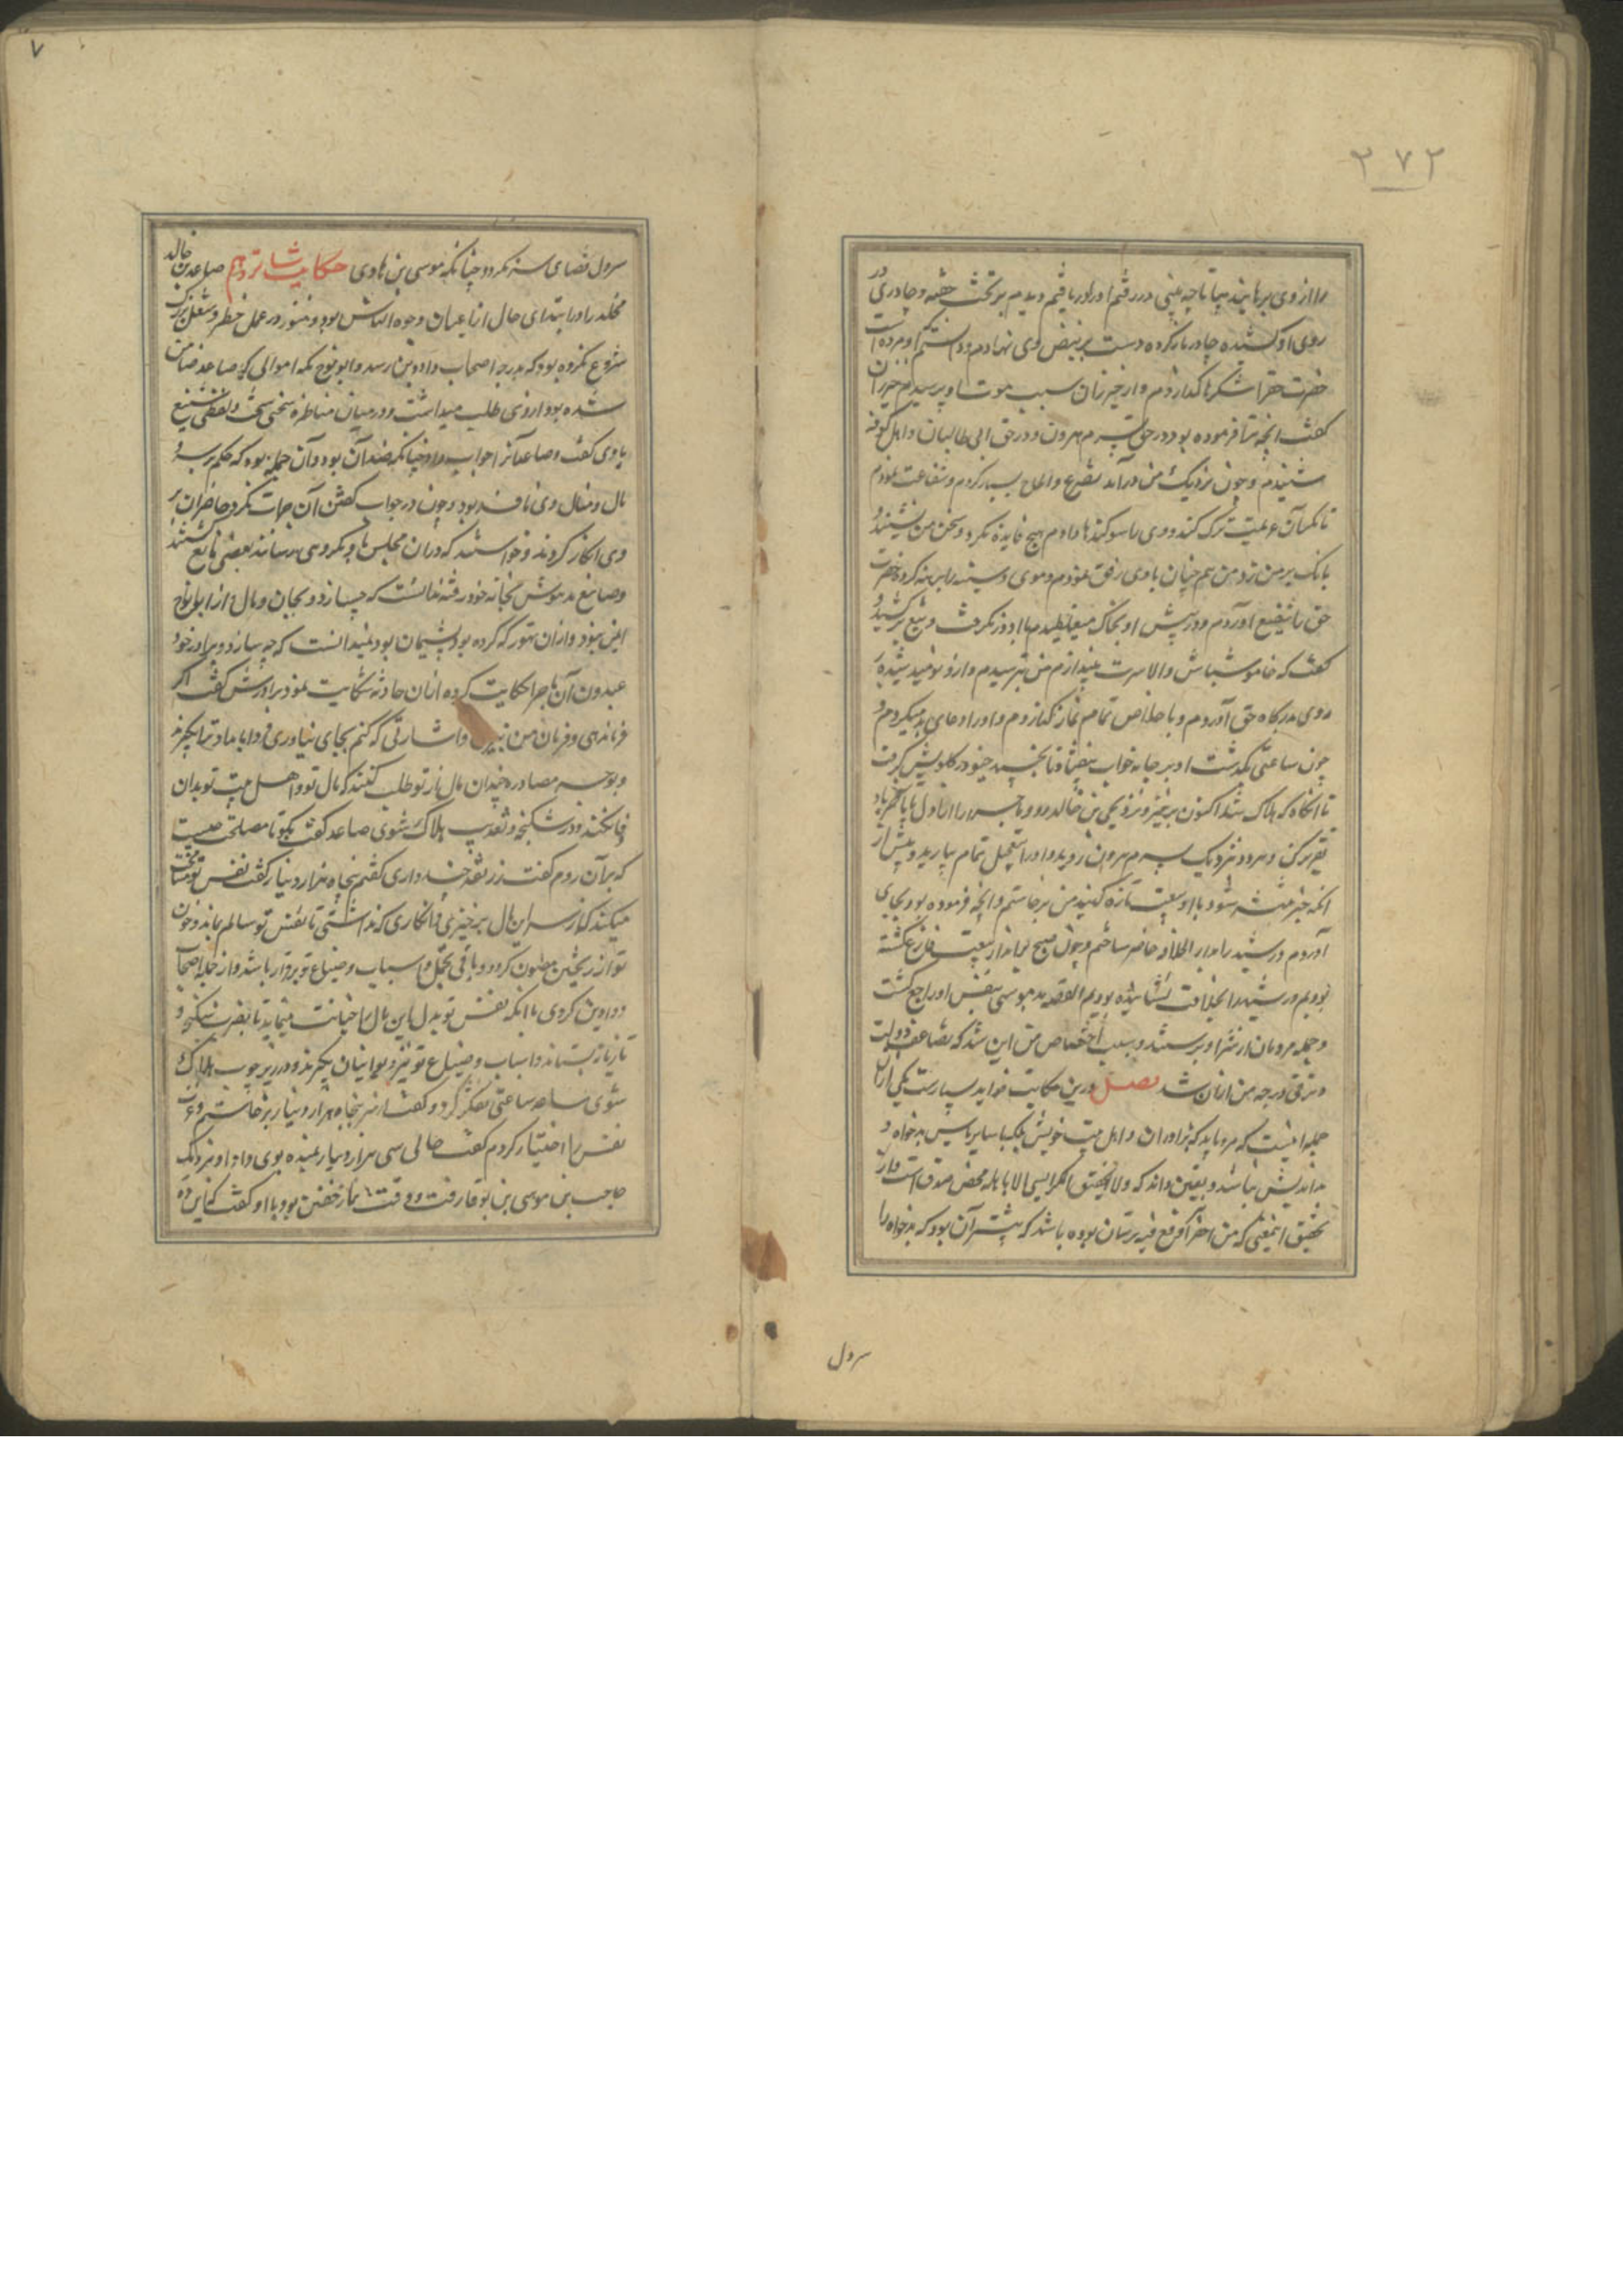 ۲۷۲
را از وی برهانید بیا تا چه بینی در رفتم او را دریافتم دیدم بر تخت خفته و چادری در
روی او کشیده چادر باز کرده دست بر نبض وی نهادم ودانستم که او مرده است
حضرت حق را شکرها گذاردم و از خیزران سبب موت او پرسیدم خیزران
گفت آنچه ترا فرموده بود در حق پسرم هرون و در حق ابی طالبیان و اهل کوفه
شنیدم و چون نزدیک من درآمد تضرع و الحاح بسیار کردم و شفاعت نمودم
تا مگر آن عزیمت ترک کند و وی را سوگندها دادم هیچ فایده نکرد و سخن من نشنید و
بانگ بر من زد من هم چنان با وی رفق نمودم و موی و سینه را برهنه کرده حضرت
حق را شفیع آوردم و در پیش او بخاک میغلطیدم با او در نگرفت و تیغ برکشید و
گفت که خاموش باش والا سرت بیندازم من بترسیدم و ازو نومید شده
روی بدرگاه حق آوردم و باخلاص تمام نماز گذاردم و او را دعای بد میکردم و
چون ساعتی بگذشت او بر جامه خواب بیفتاد تا بخسپد خیو در گلویش گرفت
تا آنگاه که هلاک شد اکنون برخیز و نزد یحیی بن خالد رو و ماجرا را از اول تا بآخر با او
تقریر کن و هر دو نزدیک پسرم هرون روید و او را بتعجیل تمام بیارید و پیش از
آنکه خبر منتشر شود با او بیعت تازه کنید من برخاستم و آنچه فرموده بود بجای
آوردم و رشید را بدار الخلافه حاضر ساختم و چون صبح برآمد از بیعت فارغ گشته
بودیم و رشید را بخلافت نشانیده بودیم القصه بد موسی بنفس او راجع گشت
و جمله مردمان از شر او برستند و سبب اختصاص من این شد که تضاعف دولت
و ترقی درجه من ازان شد فصل درین حکایت فواید بسیارست یکی از آن
جمله اینست که مرد باید که با برادران و اهل بیت خویش بلکه با سایر ناس بدخواه و
بداندیش نباشد و بیقین داند که ولا یحیق المکر السیی الا باهله محض صدقست و از
تحقیق این معنی که من حفر بئرا وقع فیه برسان بوده باشد که بیشتر آن بود که بدخواه را
سرول
۷
سرول قضای سزا نکرد چنانکه موسی بن هادی حکایت شانزدهم صاعد بن خالد
مخلد را در ابتدای حال از اعیان و وجوه الناس بود و هنوز در عمل خطر و شغل بزرگ
شروع نکرده بود که بدرجه اصحاب دواوین رسد و ابو نوح بکه اموالی که صاعد ضامن
شده بود از وی طلب میداشت و در میان مناظره سخنی سخت و لفظی شنیع
با وی گفت و صاعد آنرا جواب داد چنانکه ضد آن بود و آن جمله بود که حکم بر سر و
مال و منال وی نافذ بود و چون در جواب گفتن آن جرات نکرد حاضران بر
وی انکار کردند و خواستند که در ان مجلس ها مکروهی رسانند بعضی مانع گشتند
و صاعد مدهوش بخانه خود رفته ندانست که چه سازد و بجان و مال از ابو نوح
ایمن نبود و ازان تهور که کرده بود پشیمان بود نمیدانست که چه سازد و برادر خود
عبدون آن ماجرا حکایت کرده ازان حادثه شکایت نمود برادرش گفت اگر
فرمان دهی و فرمان من نبری و اشارتی که کنم بجای نیاوری فردا بامداد ترا بگیرند
و بوجه مصادره چندان مال از تو طلب کنند که مال تو و اهل بیت تو بدان
وفا نکند و در شکنجه و تعذیب هلاک شوی صاعد گفت بگو تا مصلحت چیست
که بر آن روم گفت زر نقد چند داری گفتم پنجاه هزار دینار گفت نفس تو مسامحت
میکند که از سر این مال برخیزی و انگاری که نداشتی تا نفس تو سالم بماند و خون
تو از ریختن مصون گردد و باقی تجمل و اسباب و ضیاع تو برقرار باشد و از جمله اصحاب
دواوین گردی یا آنکه نفس تو بدل این مال را خیانت مینماید تا بضرب شکنجه و
تازیانه بستانند و اسباب و ضیاع تو نیز دیوانیان بگیرند و در زیر چوب هلاک
شوی صاعد ساعتی تفکر کرد و گفت از سر پنجاه هزار دینار برخاستم و عزت
نفس را اختیار کردم گفت حالی سی هزار دینار بمن ده بوی داد او نزدیک
حاجب بن موسی بن بوقا رفت و وقت نماز خفتن بود با او گفت که این ده